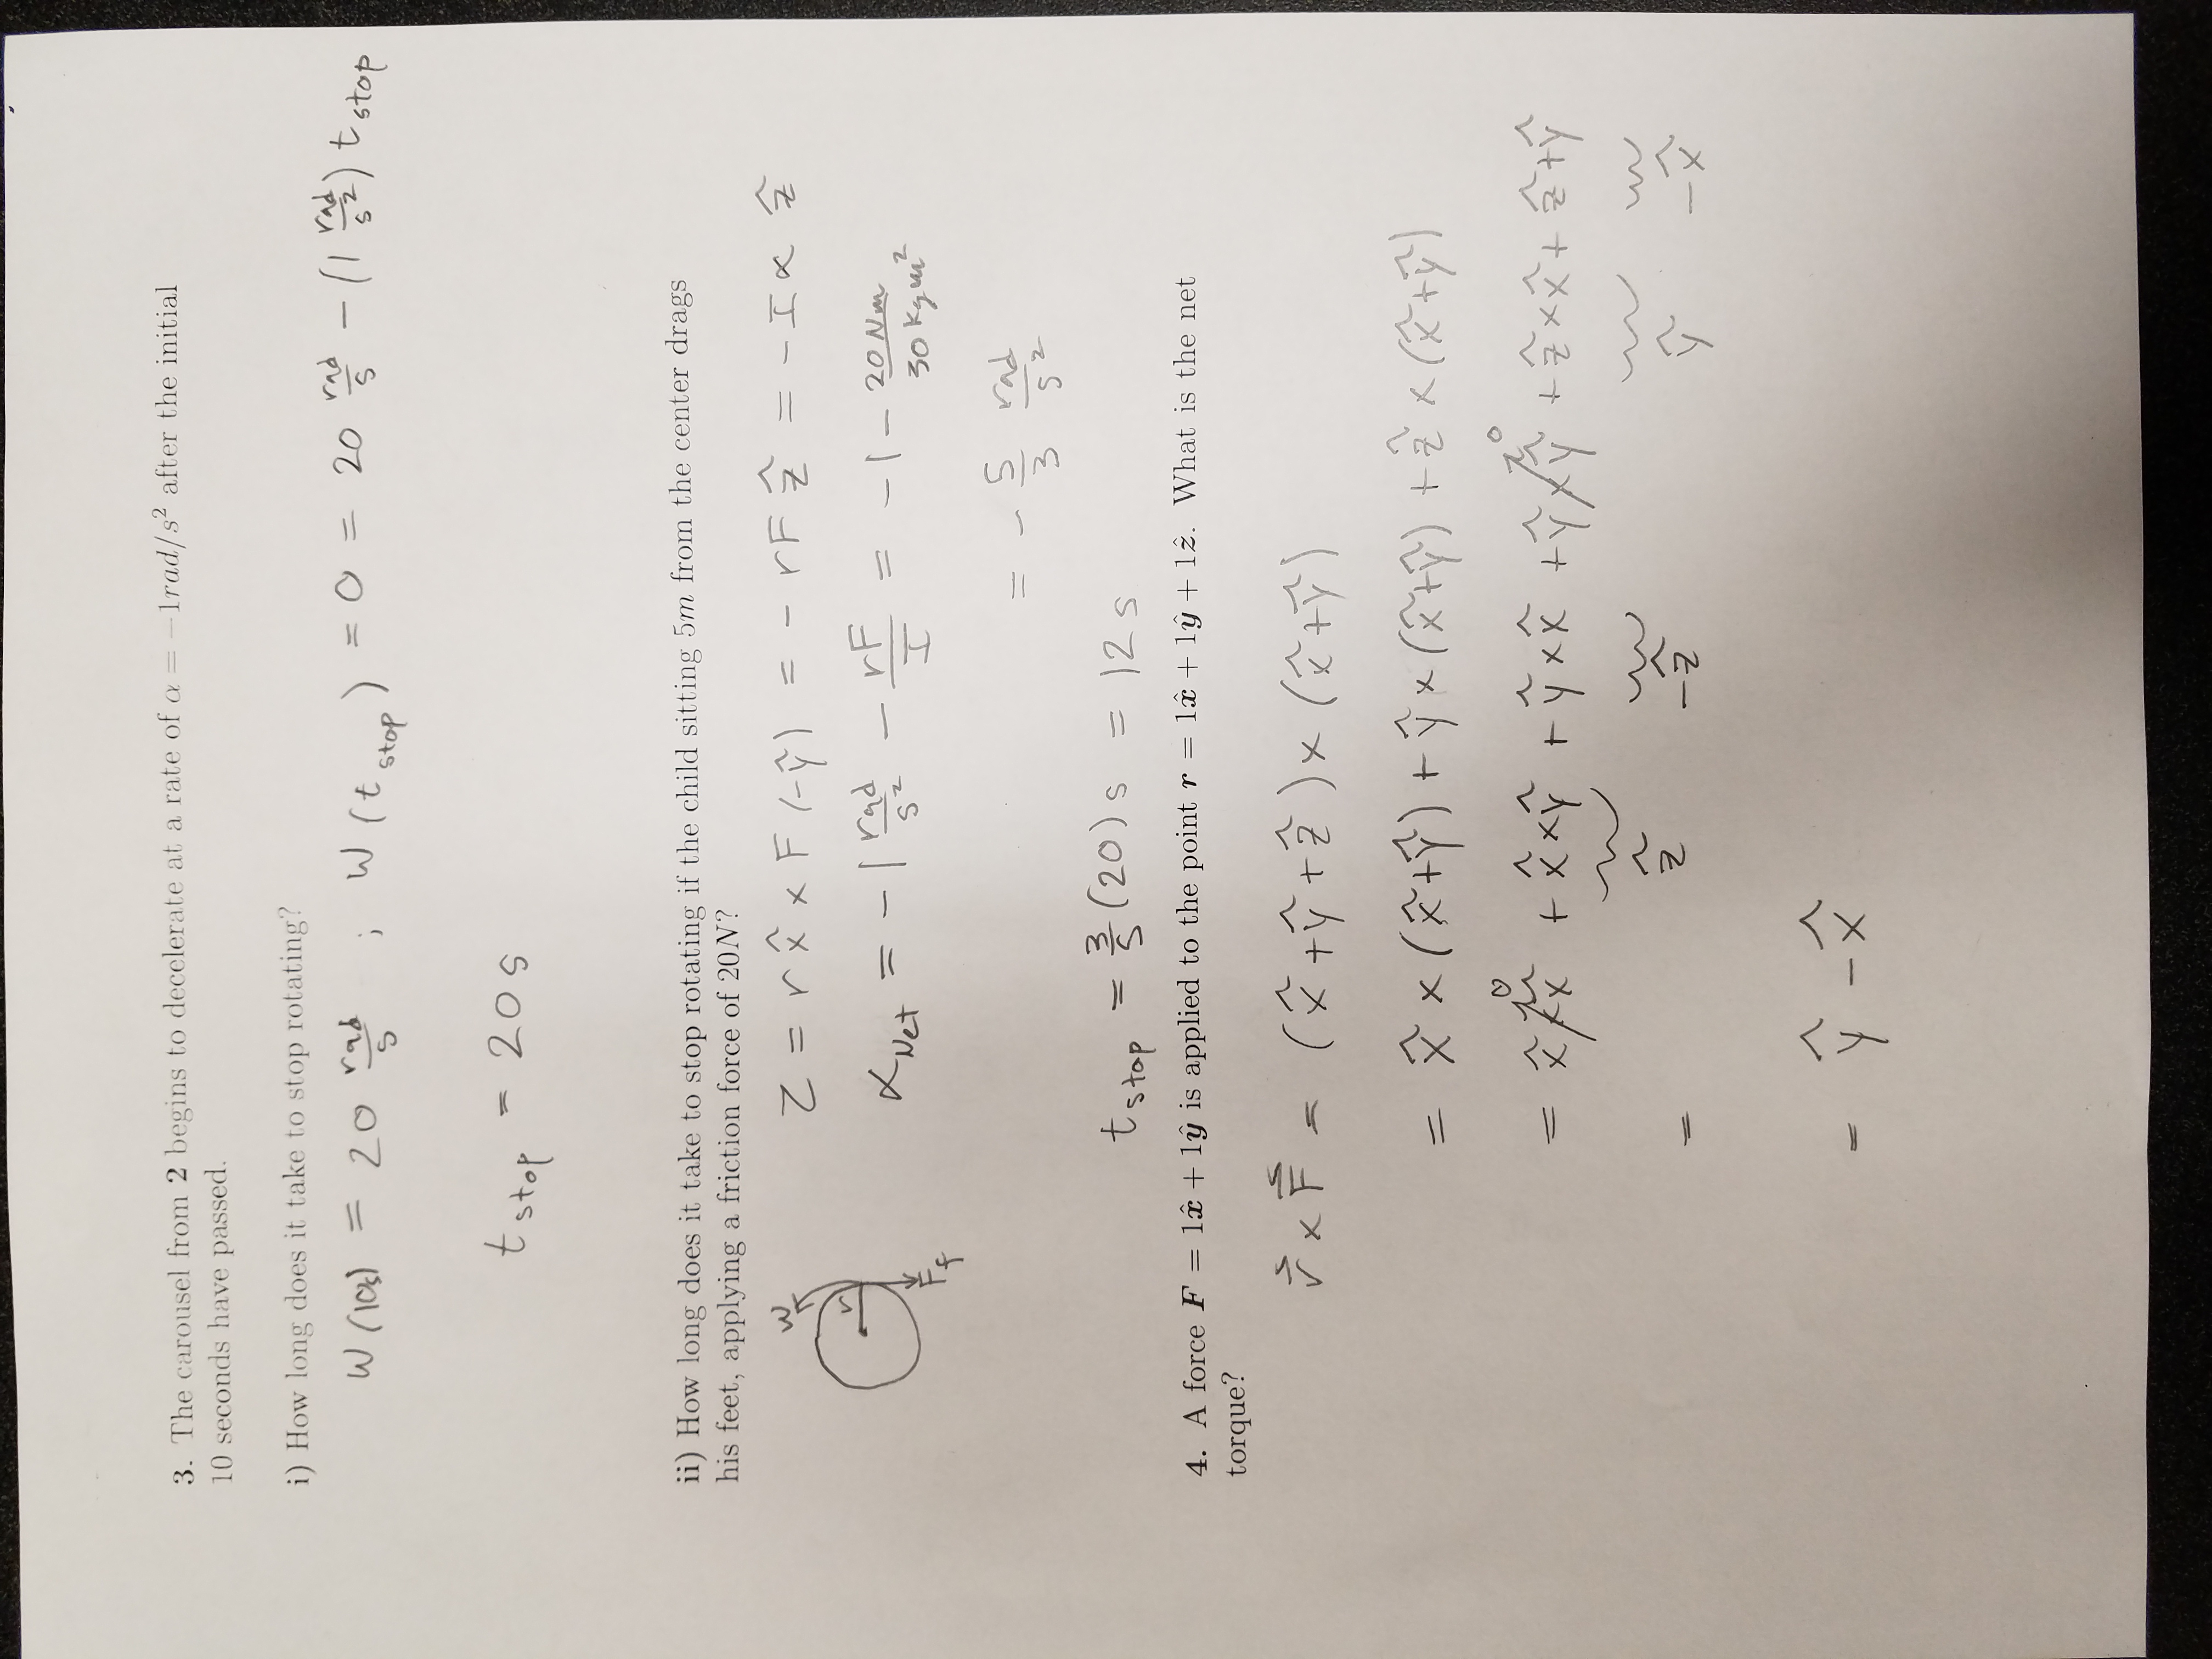 3. The carousel from 2 begins to decelerate at a rate of α = −1rad/s² after the initial
10 seconds have passed.
i) How long does it take to stop rotating?
W(10s) = 20 rad/s ; W(t_stop) = 0 = 20 rad/s − (1 rad/s²) t_stop
t_stop = 20s
ii) How long does it take to stop rotating if the child sitting 5m from the center drags
his feet, applying a friction force of 20N?
W
r
F_f
τ = r x̂ × F (−ŷ) = − rF ẑ = − I α ẑ
α_Net = −1 rad/s² − rF/I = −1 − 20 Nm/30 kgm²
= − 5/3 rad/s²
t_stop = 3/5 (20) s = 12 s
4. A force F = 1x̂ + 1ŷ is applied to the point r = 1x̂ + 1ŷ + 1ẑ. What is the net
torque?
r⃗ × F⃗ = (x̂ + ŷ + ẑ) × (x̂ + ŷ)
= x̂ × (x̂ + ŷ) + ŷ × (x̂ + ŷ) + ẑ × (x̂ + ŷ)
= x̂ × x̂ 0 + x̂ × ŷ + ŷ × x̂ + ŷ × ŷ 0 + ẑ × x̂ + ẑ + ŷ
= ẑ −ẑ ŷ −x̂
= ŷ − x̂